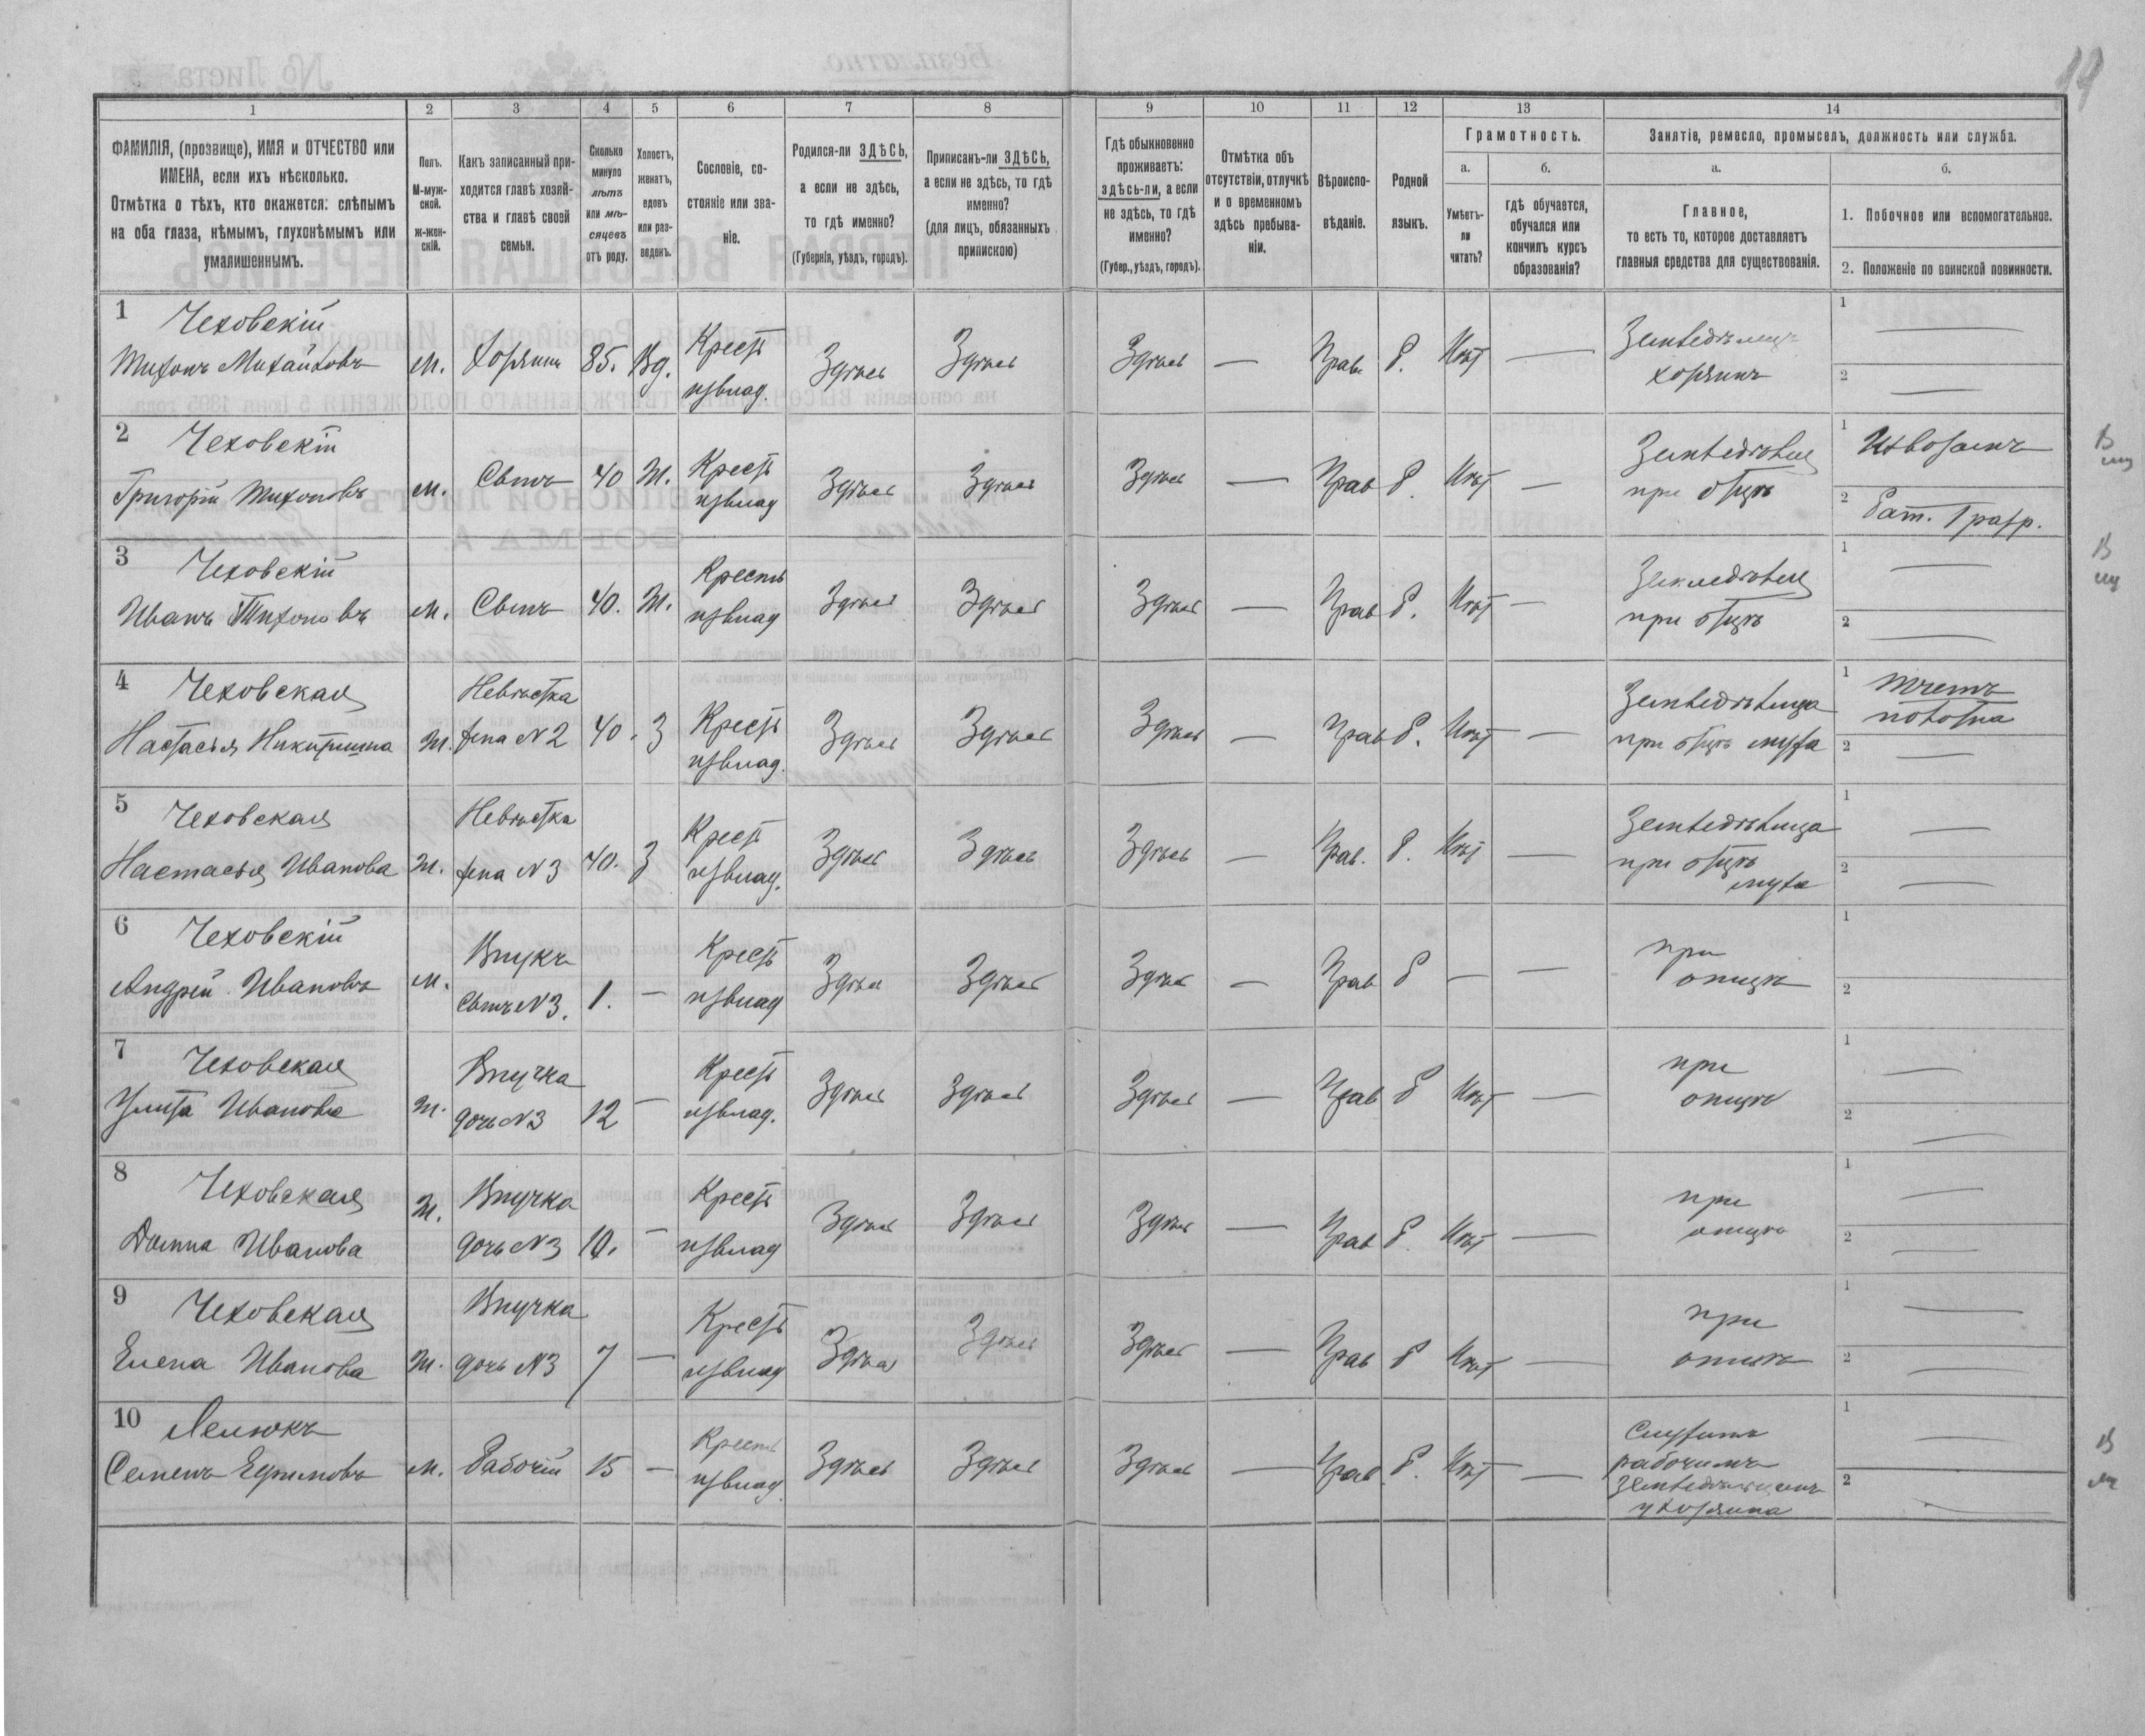 14
1
2
3
4
5
6
7
8
9
10
11
12
13
14
ФАМИЛІЯ, (прозвище), ИМЯ и ОТЧЕСТВО или
ИМЕНА, если ихъ нѣсколько.
Отмѣтка о тѣхъ, кто окажется: слѣпымъ
на оба глаза, нѣмымъ, глухонѣмымъ или
умалишеннымъ.
Полъ.
М-муж-
ской.
ж-жен-
скій.
Какъ записанный при-
ходится главѣ хозяй-
ства и главѣ своей
семьи.
Сколько
минуло
лѣтъ
или мѣ-
сяцевъ
отъ роду.
Холостъ,
женатъ,
вдовъ
или раз-
веденъ.
Сословіе, со-
стояніе или зва-
ніе.
Родился-ли ЗДѢСЬ,
а если не здѣсь,
то гдѣ именно?
(Губернія, уѣздъ, городъ).
Приписанъ-ли ЗДѢСЬ,
а если не здѣсь, то гдѣ
именно?
(для лицъ, обязанныхъ
припискою)
Гдѣ обыкновенно
проживаетъ:
здѣсь-ли, а если
не здѣсь, то гдѣ
именно?
(Губер., уѣздъ, городъ).
Отмѣтка объ
отсутствіи, отлучкѣ
и о временномъ
здѣсь пребыва-
ніи.
Вѣроиспо-
вѣданіе.
Родной
языкъ.
Грамотность.
а.
Умѣетъ-
ли
читать?
б.
гдѣ обучается,
обучался или
кончилъ курсъ
образованія?
Занятіе, ремесло, промыселъ, должность или служба.
а.
Главное,
то есть то, которое доставляетъ
главныя средства для существованія.
б.
1. Побочное или вспомогательное.
2. Положеніе по воинской повинности.
1 Чеховскій
Тихонъ Михайловъ м. Хозяинъ 85. Вд. Крест. изъ влад. Здѣсь Здѣсь Здѣсь — Прав. Р. Нѣт — Земледѣлецъ хозяинъ 1 — 2 —
2 Чеховскій
Григорій Тихоновъ м. Сынъ 40 Ж. Крест. изъ влад Здѣсь Здѣсь Здѣсь — Прав Р. Нѣт — Земледѣлец при отцѣ 1 2 Рат. 1 разр.
3 Чеховскій
Иванъ Тихоновъ м. Сынъ 40. Ж. Крест изъ влад Здѣсь Здѣсь Здѣсь — Прав Р. Нѣт — Земледѣлец при отцѣ 1 — 2 —
4 Чеховская
Настасья Никитина ж. Невѣстка жена № 2 40. З Крест изъ влад. Здѣсь Здѣсь Здѣсь — Прав Р. Нѣт — Земледѣлица при отцѣ мужа 1 Ткетъ полотна 2 —
5 Чеховская
Настасья Иванова ж. Невѣстка жена № 3 40. З Крест изъ влад. Здѣсь Здѣсь Здѣсь — Прав. Р. Нѣт — Земледѣлица при отцѣ мужа 1 — 2 —
6 Чеховскій
Андрей Ивановъ м. Внукъ сынъ № 3. 1. — Крест изъ влад Здѣсь Здѣсь Здѣсь — Прав Р — — при отцѣ 1 2
7 Чеховская
Улита Иванова ж. Внучка дочь № 3 12 — Крест изъ влад. Здѣсь Здѣсь Здѣсь — Прав Р Нѣт — при отцѣ 1 — 2 —
8 Чеховская
Домна Иванова ж. Внучка дочь № 3 10. — Крест изъ влад Здѣсь Здѣсь Здѣсь — Прав Р. Нѣт — при отцѣ 1 — 2 —
9 Чеховская
Елена Иванова ж. Внучка дочь № 3 7 — Крест изъ влад Здѣсь Здѣсь Здѣсь — Прав Р Нѣт — при отцѣ 1 — 2 —
10 Лелюкъ
Семенъ Ефимовъ м. Рабочій 15 — Крест изъ влад. Здѣсь Здѣсь Здѣсь — Прав. Р. Нѣт — Служитъ рабочимъ у хозяина 1 — 2 —